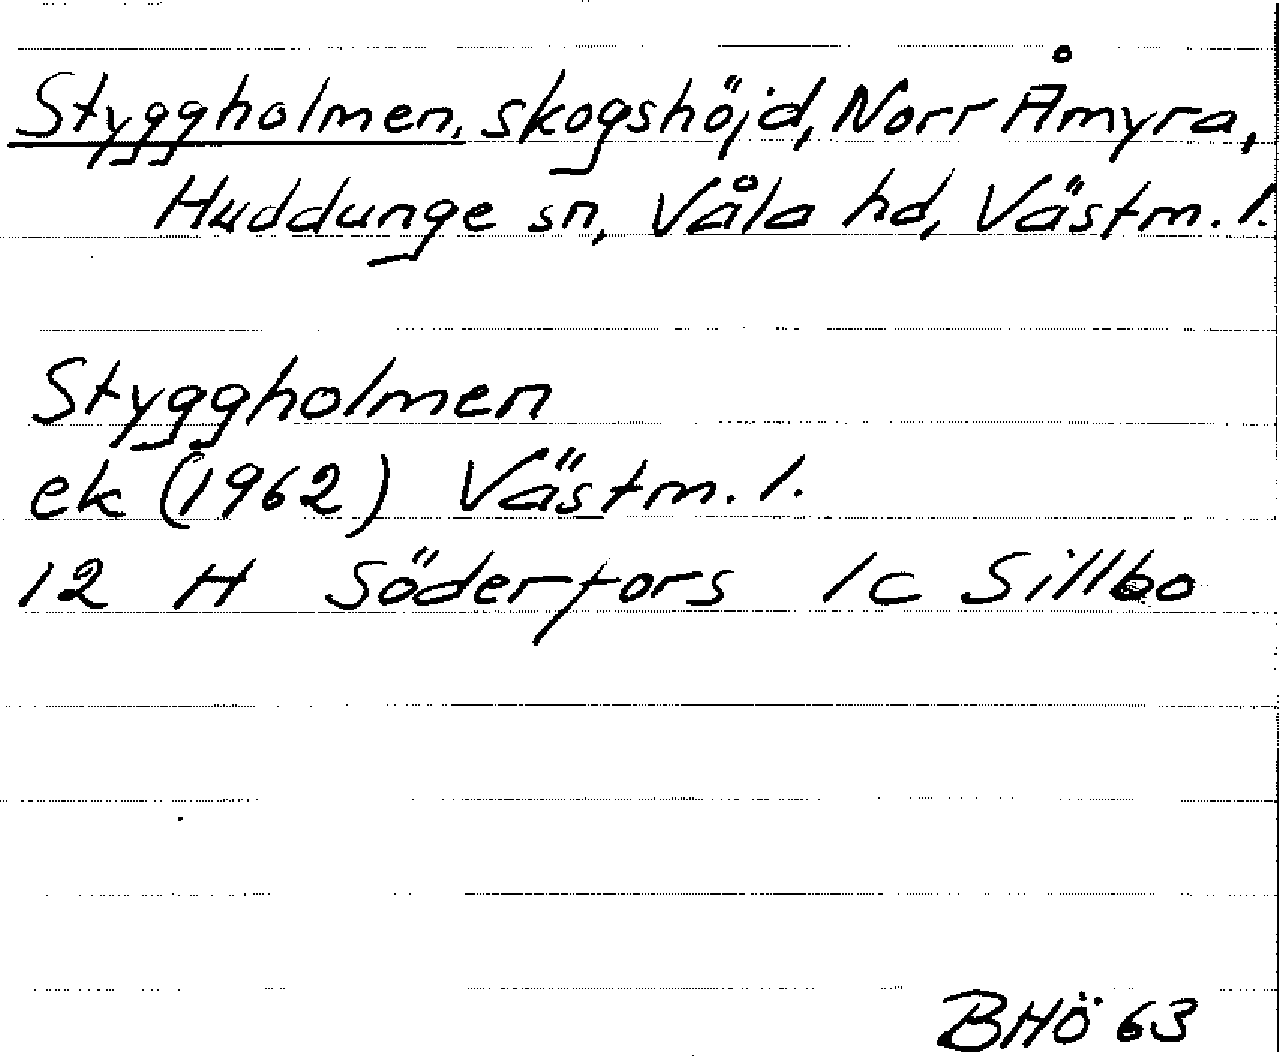 Styggholmen, skogshöjd, Norr Åmyra,
Huddunge sn, Våla hd, Västm. l.
Styggholmen
ek (1962) Västm. l.
12 H Söderfors 1c Sillbo
BHÖ 63